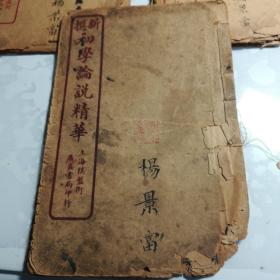 新撰初學論說精華
上海棋盤街
廣益書局印行
楊景富
楊景富